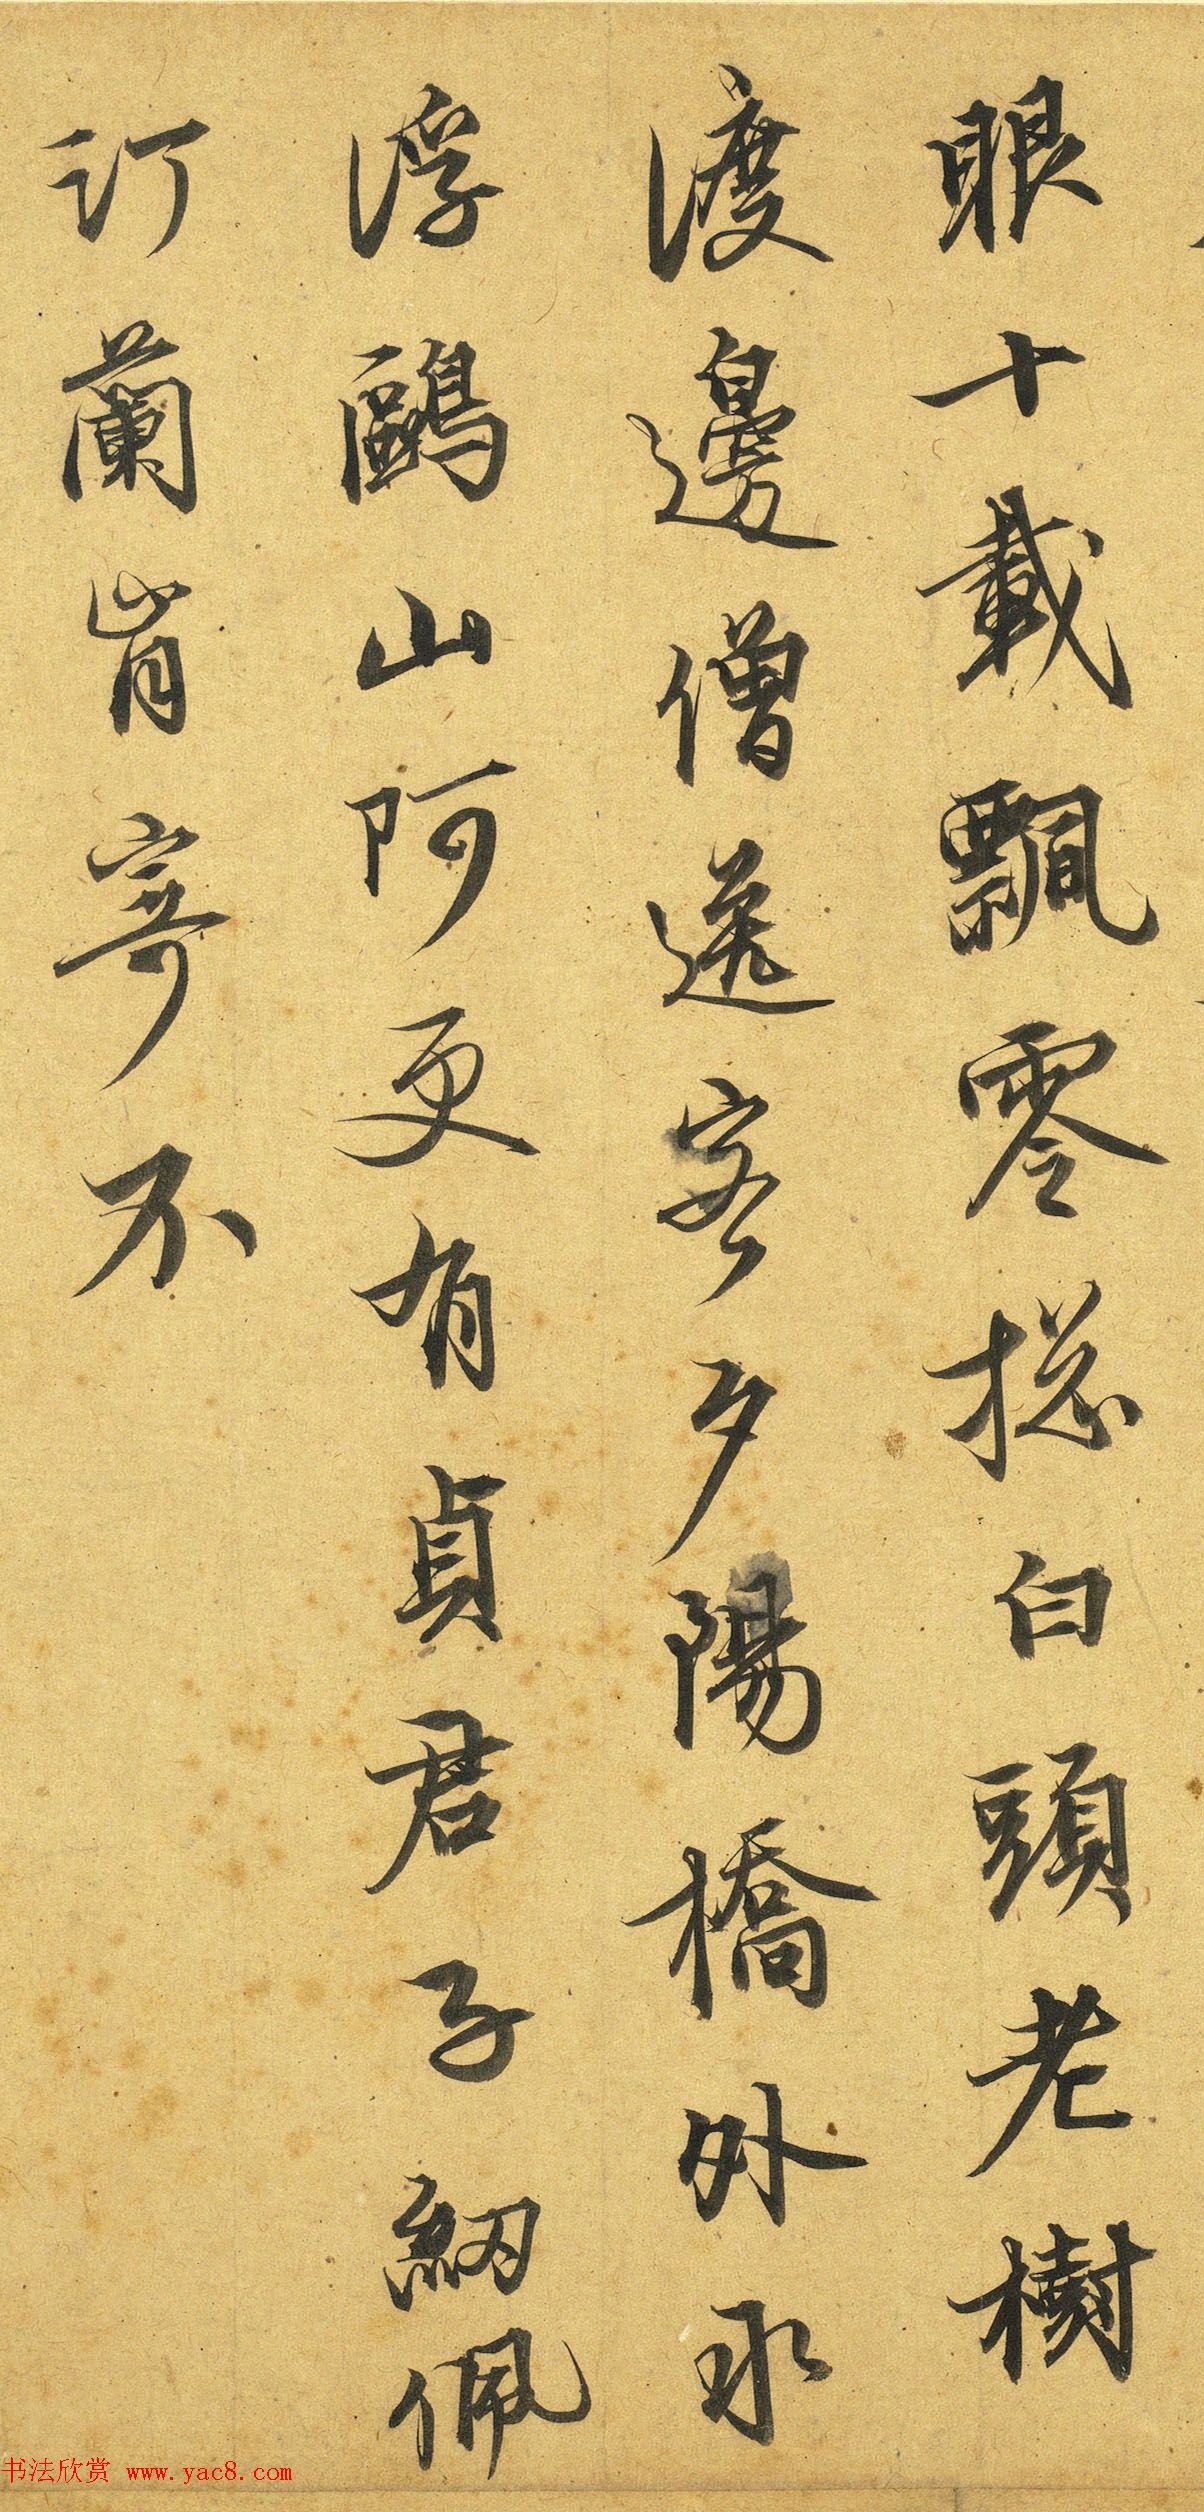 眼十載飄零搃白頭老樹
渡邊僧送客夕陽橋外水
浮鷗山阿更有貞君子紉佩
汀蘭肯寄不
书法欣赏 www.yac8.com